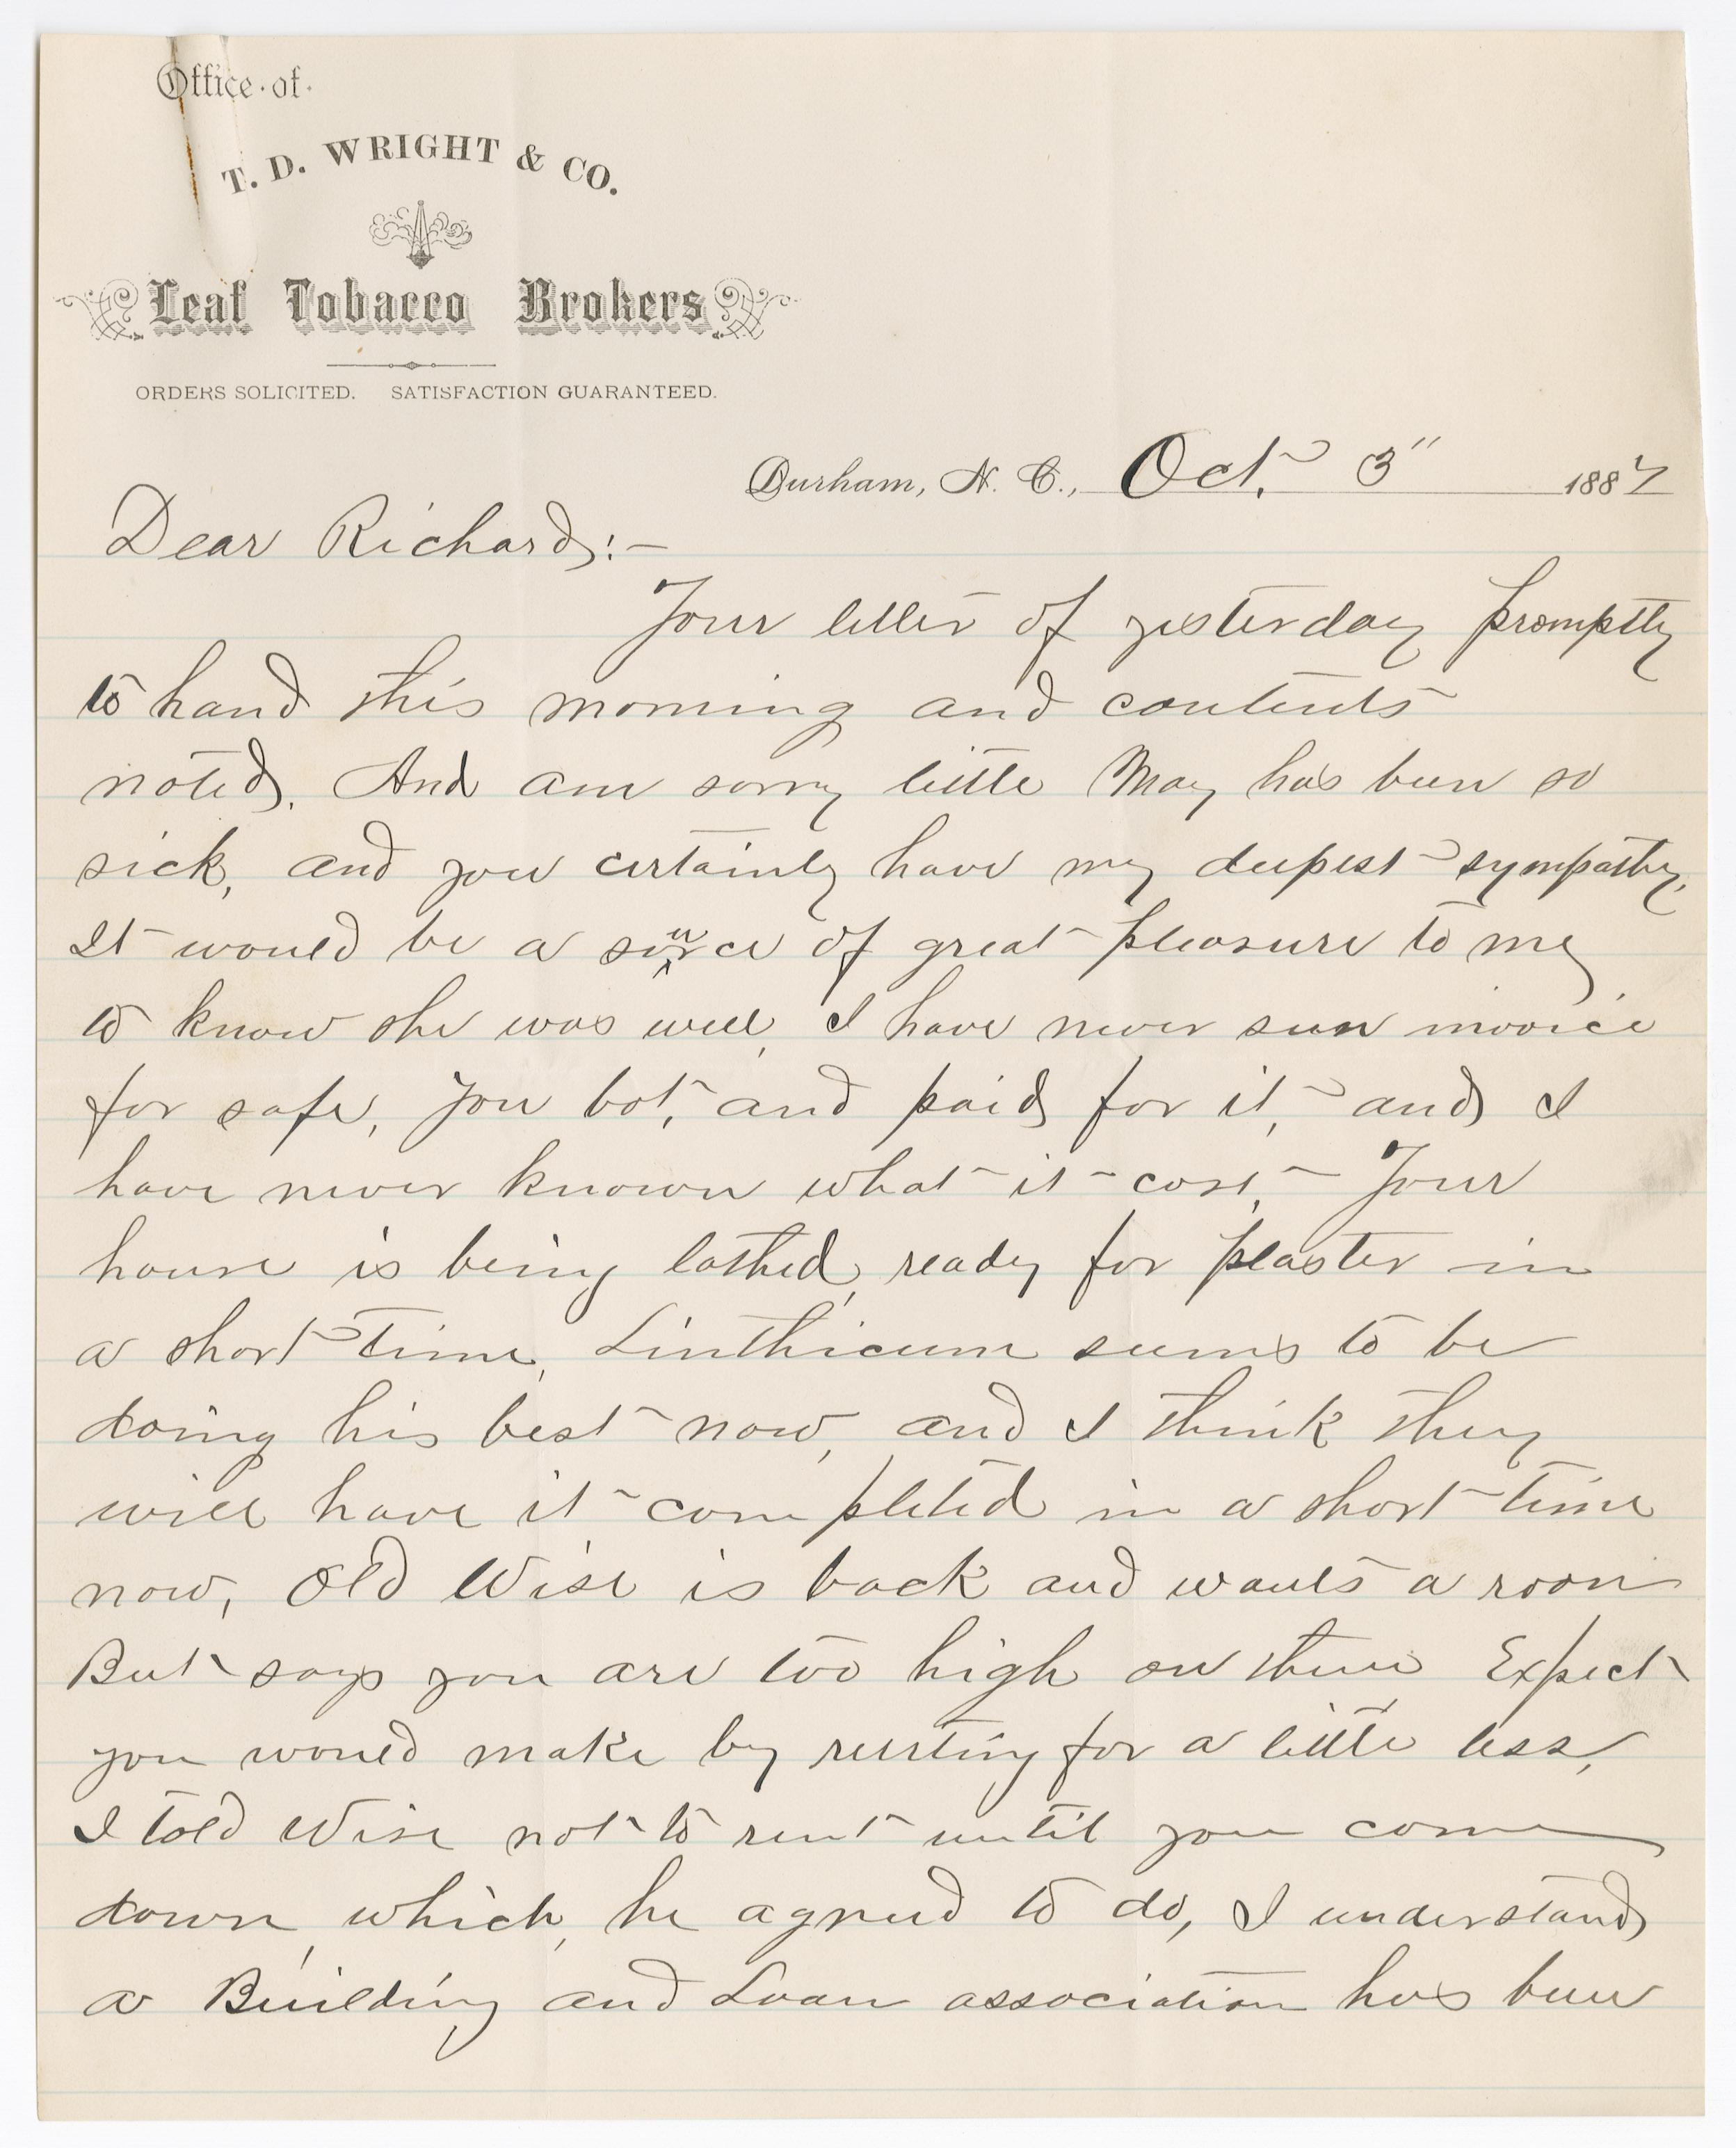 Office of
T. D. WRIGHT & CO.
Leaf Tobacco Brokers
ORDERS SOLICITED. SATISFACTION GUARANTEED.
Durham, N. C., Oct. 3" 1887
Dear Richard:-
Your letter of yesterday promptly
to hand this morning and contents
noted. And am sorry little May has been so
sick, and you certainly have my deepest sympathy.
It would be a source of great pleasure to me
to know she was well, I have never seen invoice
for safe, you bot, and paid for it, and I
have never known what it cost, Your
house is being lathed, ready for plaster in
a short time, Linthicum seems to be
doing his best now, and I think they
will have it completed in a short time
now, Old Wise is back and wants a room
But says you are too high on them Expect
you would make by renting for a little less,
I told Wise not to rent until you come
down, which, he agreed to do, I understand
a Building and Loan association has been